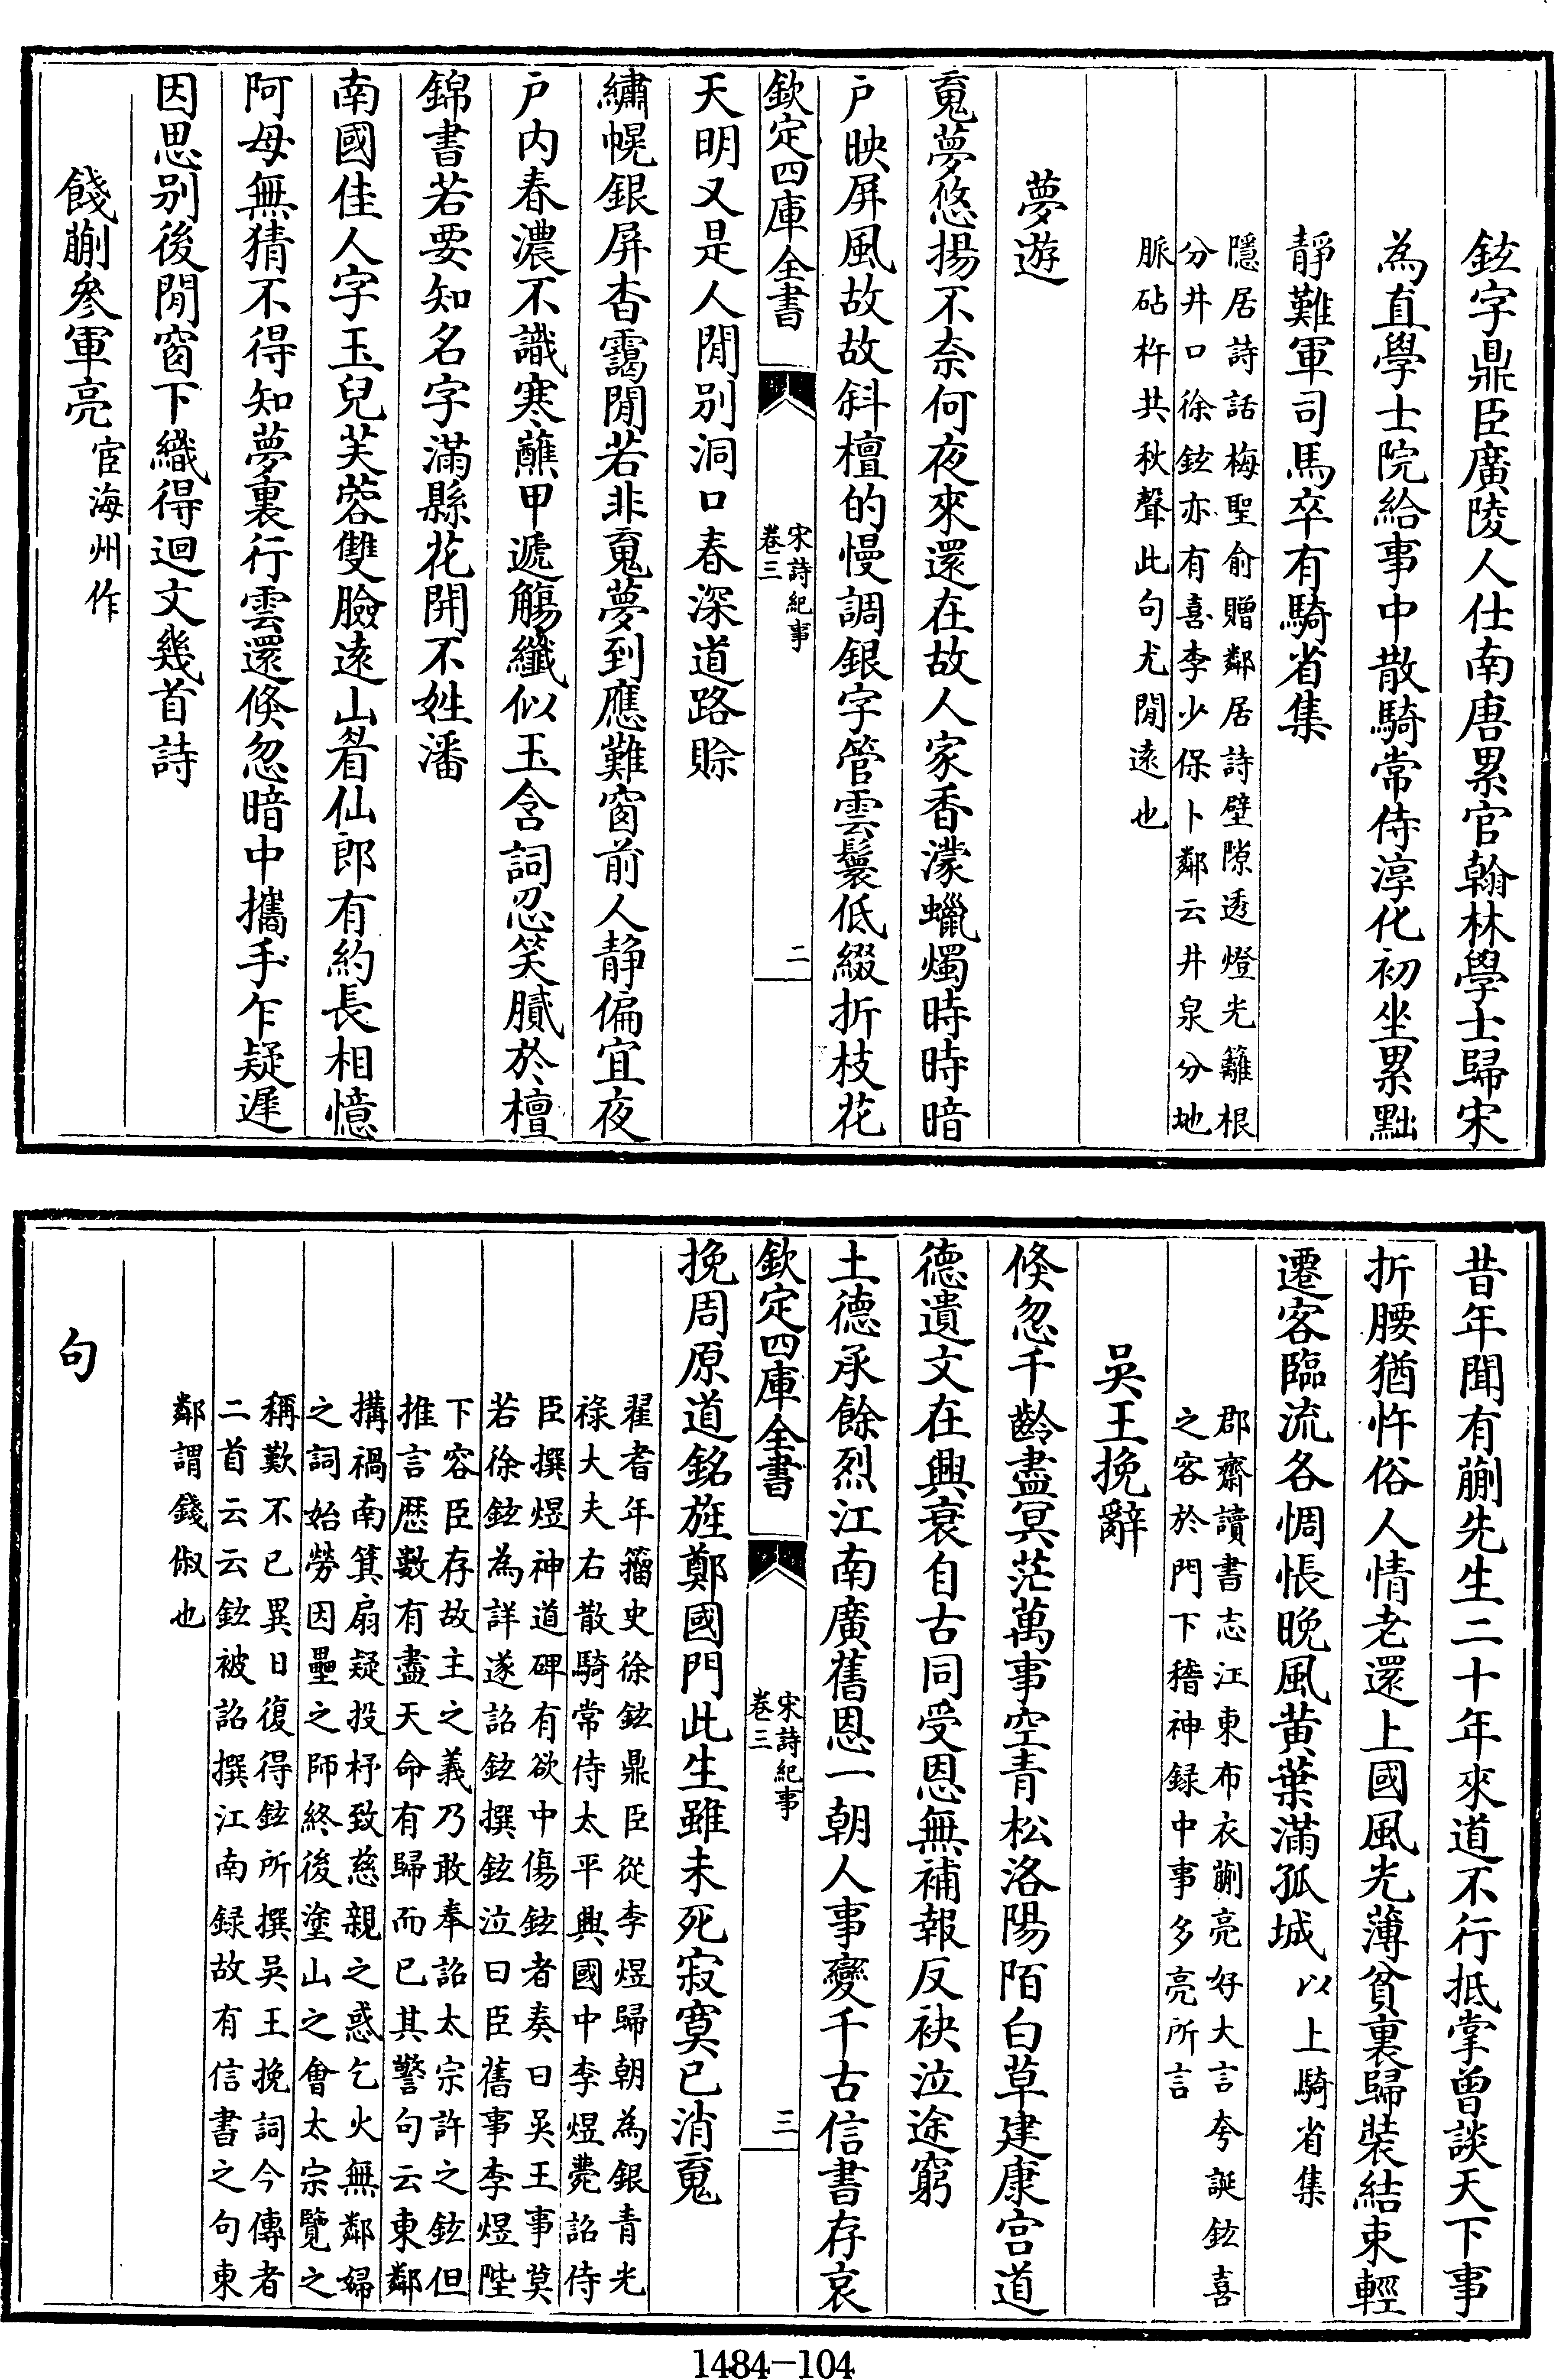 鉉字鼎臣廣陵人仕南唐累官翰林學士歸宋
為直學士院給事中散騎常侍淳化初坐累黜
靜難軍司馬卒有騎省集
隱居詩話梅聖俞贈鄰居詩壁隙透燈光籬根
分井口徐鉉亦有喜李少保卜鄰云井泉分地
脈砧杵共秋聲此句尤閒遠也
夢遊
䰟夢悠揚不奈何夜來還在故人家香濛蠟燭時時暗
户映屏風故故斜檀的慢調銀字管雲鬟低綴折枝花
欽定四庫全書
宋詩紀事
卷三
二
天明又是人閒别洞口春深道路賒
繡幌銀屏杳靄閒若非䰟夢到應難窗前人静偏宜夜
户内春濃不識寒蘸甲遞觴纖似玉含詞忍笑膩於檀
錦書若要知名字滿縣花開不姓潘
南國佳人字玉兒芙蓉雙臉逺山眉仙郎有約長相憶
阿母無猜不得知夢裏行雲還倐忽暗中攜手乍疑遲
因思别後閒窗下織得迴文幾首詩
餞蒯參軍亮
宦海州作
昔年聞有蒯先生二十年來道不行抵掌曾談天下事
折腰猶忤俗人情老還上國風光薄貧裏歸裝結束輕
遷客臨流各惆悵晚風黄葉滿孤城
以上騎省集
郡齋讀書志江東布衣蒯亮好大言夸誕鉉喜
之客於門下稽神録中事多亮所言
吳王挽辭
倐忽千齡盡冥茫萬事空青松洛陽陌白草建康宫道
德遺文在興衰自古同受恩無補報反袂泣途窮
土德承餘烈江南廣舊恩一朝人事變千古信書存哀
欽定四庫全書
宋詩紀事
卷三
三
挽周原道銘旌鄭國門此生雖未死寂寞已消䰟
翟耆年籀史徐鉉鼎臣從李煜歸朝為銀青光
禄大夫右散騎常侍太平興國中李煜薨詔侍
臣撰煜神道碑有欲中傷鉉者奏曰吳王事莫
若徐鉉為詳遂詔鉉撰鉉泣曰臣舊事李煜陛
下容臣存故主之義乃敢奉詔太宗許之鉉但
推言厯數有盡天命有歸而已其警句云東鄰
搆禍南箕扇疑投杼致慈親之惑乞火無鄰婦
之詞始勞因壘之師終後塗山之會太宗覽之
稱歎不已異日復得鉉所撰吳王挽詞今傳者
二首云云鉉被詔撰江南録故有信書之句東
鄰謂錢俶也
句
1484-104